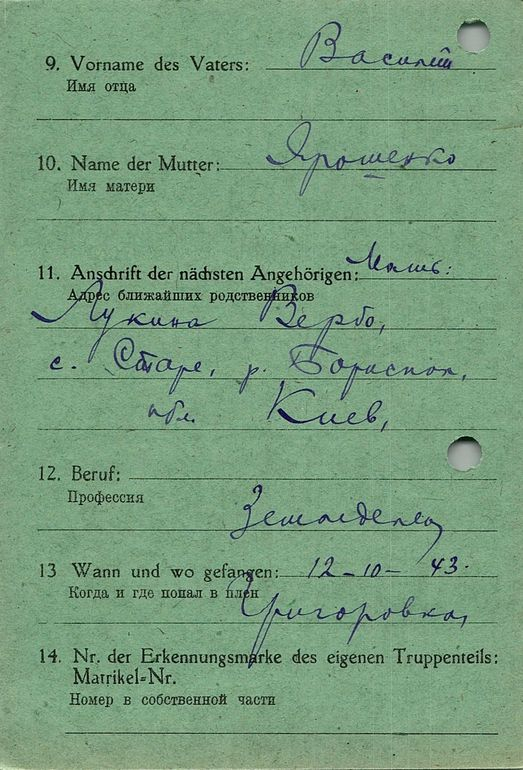 9. Vorname des Vaters: Василий
Имя отца
10. Name der Mutter: Ярошенко
Имя матери
11. Anschrift der nächsten Angehörigen: Мать:
Адрес ближайших родственников
Лукина Вербо,
с. Старе, р. Бориспол,
обл. Киев,
12. Beruf:
Профессия
Земледелец
13 Wann und wo gefangen: 12-10-43.
Когда и где попал в плен
Григоровка,
14. Nr. der Erkennungsmarke des eigenen Truppenteils:
Matrikel=Nr.
Номер в собственной части